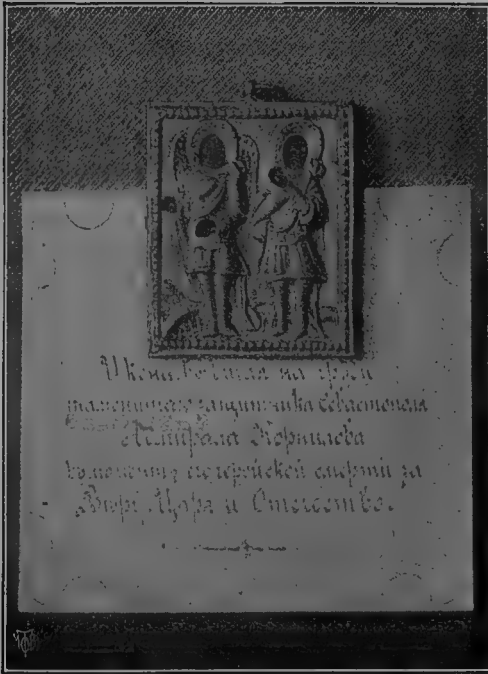 Икона, бывшая на груди
знаменитаго защитника Севастополя
Адмирала Корнилова
въ моментъ его геройской смерти за
„Вѣру, Царя и Отечество.“